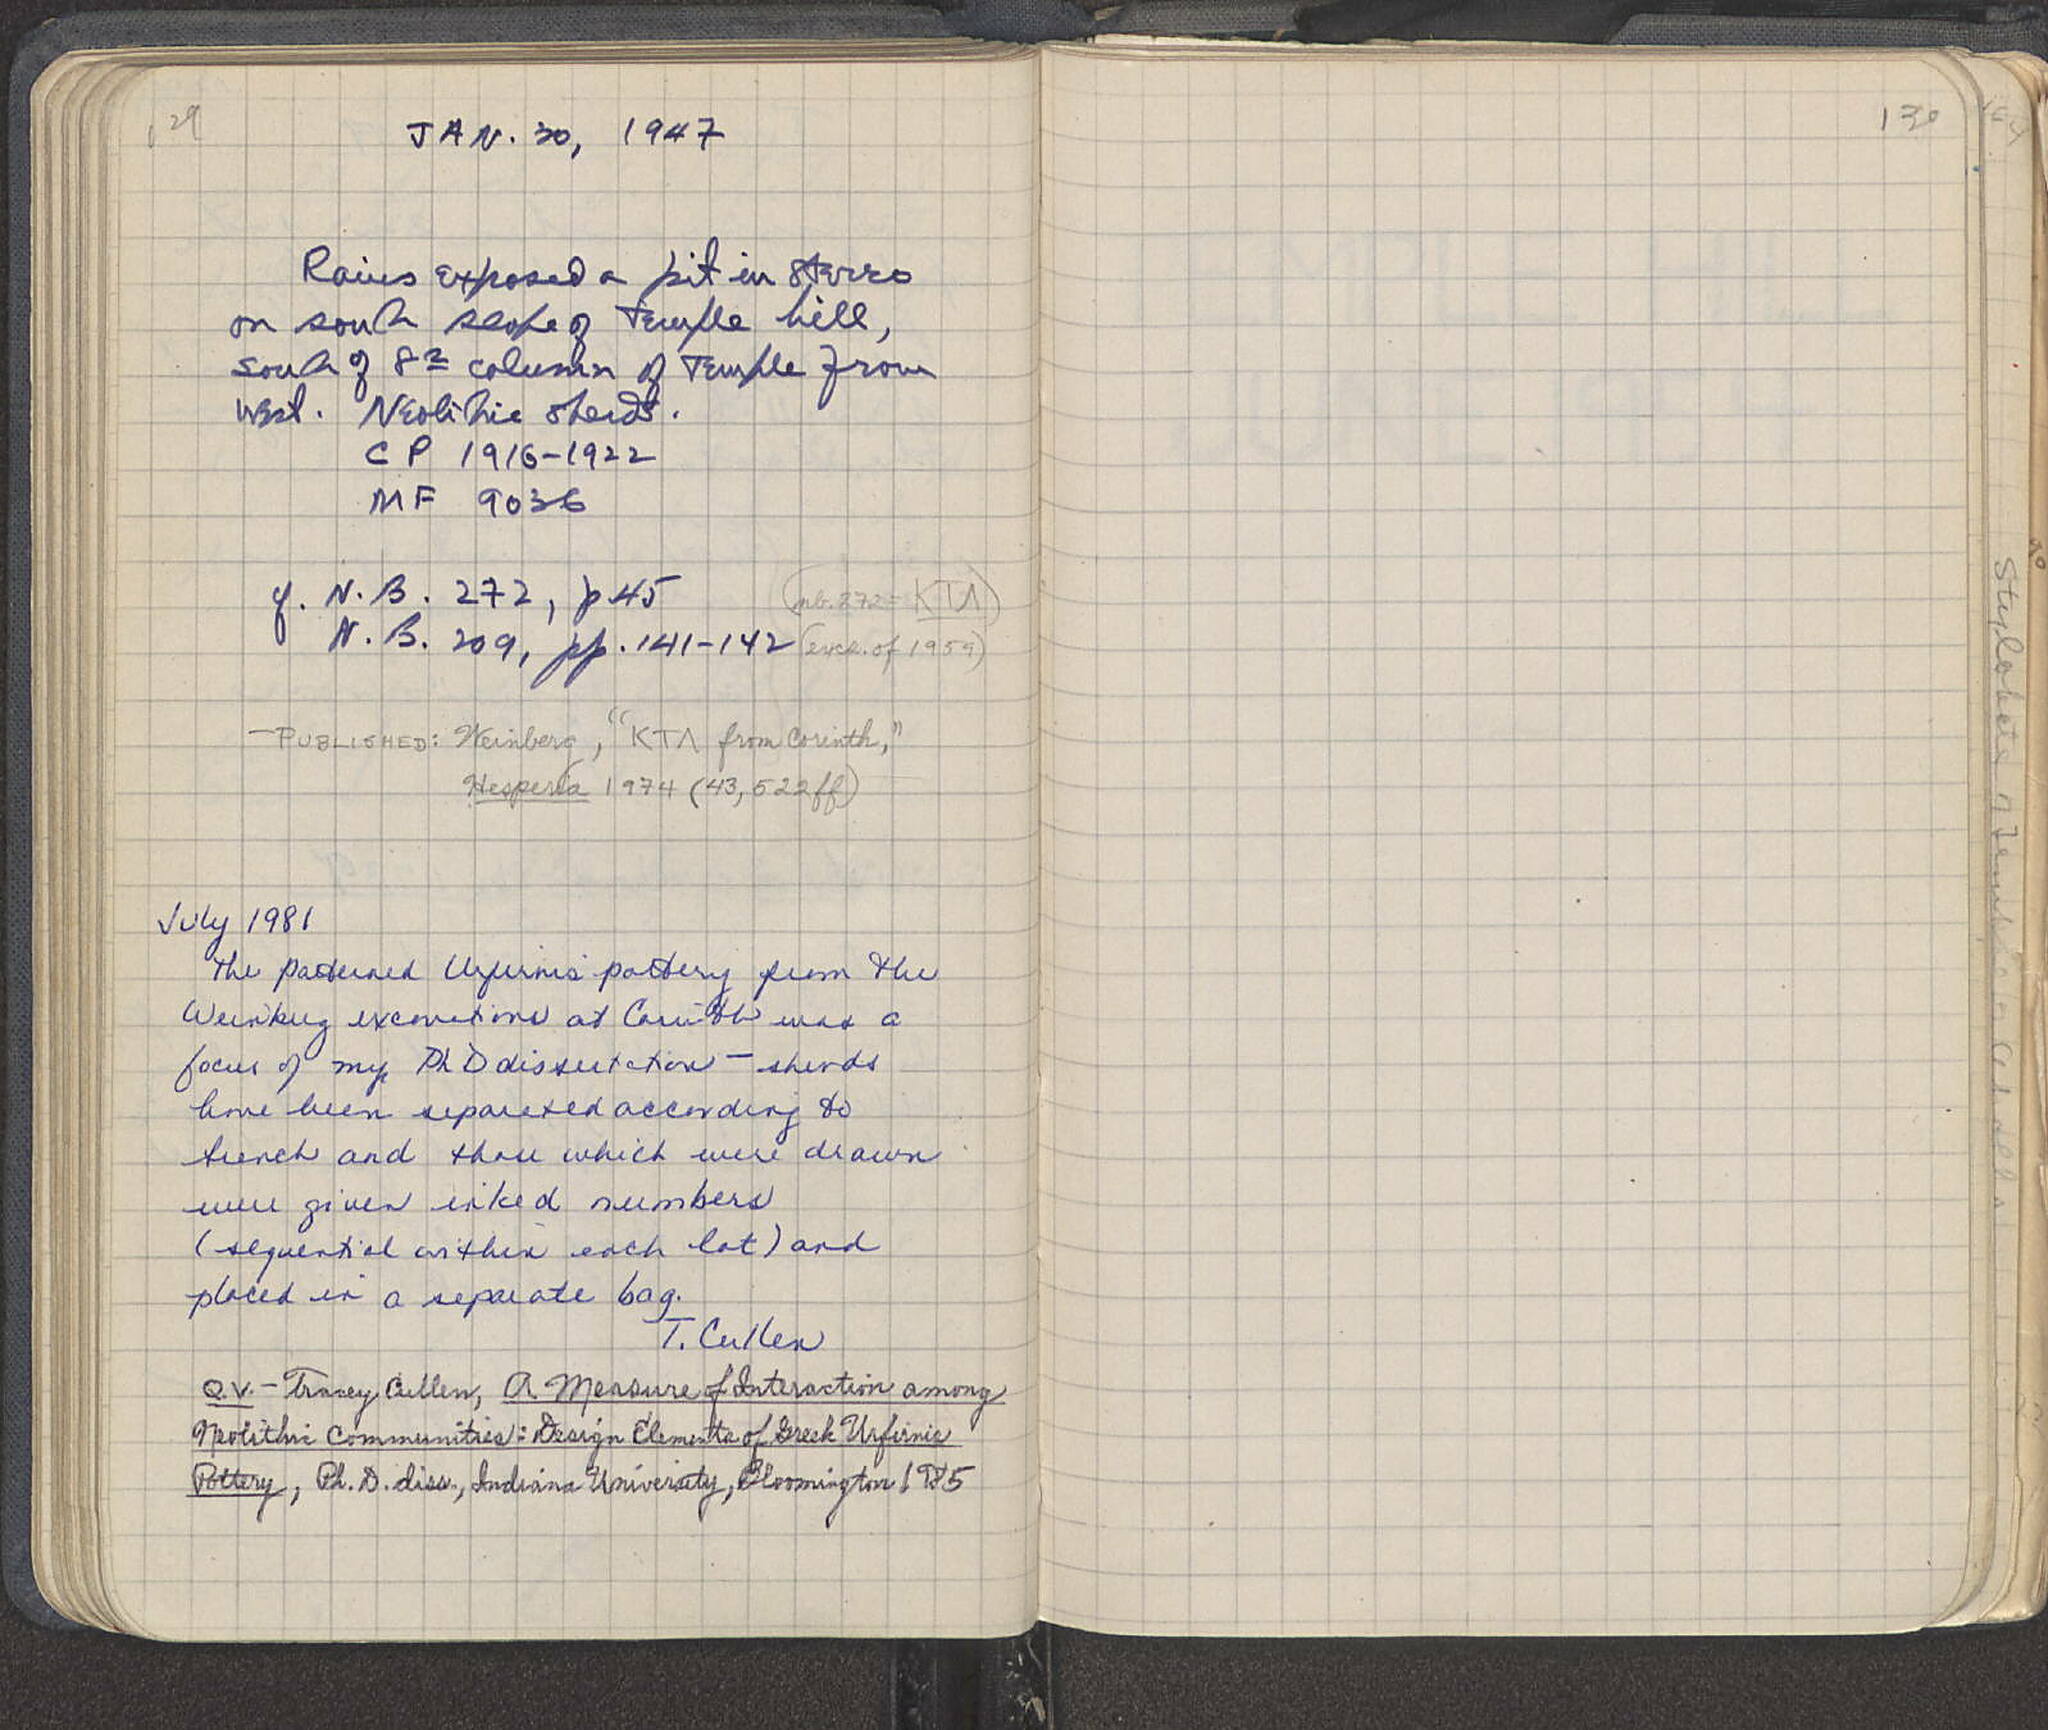 129
JAN. 20, 1947
Rains exposed a pit in stereo
on south slope of Temple hill,
south of 8th column of Temple from
west. Neolithic sherds.
CP 1916-1922
MF 9036
cf. N.B. 272, p 45 (nb. 272 = KTΛ)
N.B. 209, pp. 141-142 (exca. of 1959)
- PUBLISHED: Weinberg, "KTΛ from Corinth,"
Hesperia 1974 (43, 522ff)
July 1981
The patterned Urfirnis pottery from the
Weinberg excavations at Corinth was a
focus of my Ph D dissertation - sherds
have been separated according to
trench and those which were drawn
were given inked numbers
(sequential within each lot) and
placed in a separate bag.
T. Cullen
Q.V. - Tracey Cullen, A Measure of Interaction among
Neolithic Communities: Design Elements of Greek Urfirnis
Pottery, Ph. D. diss., Indiana University, Bloomington 1985
130